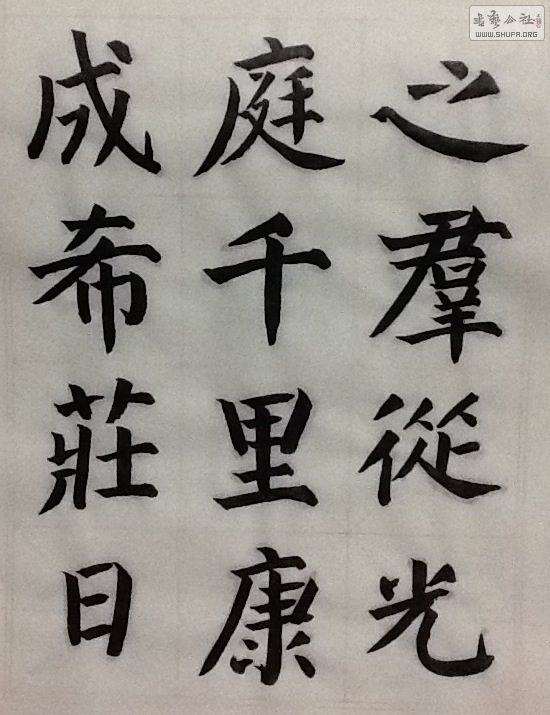 之羣從光
庭千里康
成希莊日
書藝公社
WWW.SHUFA.ORG